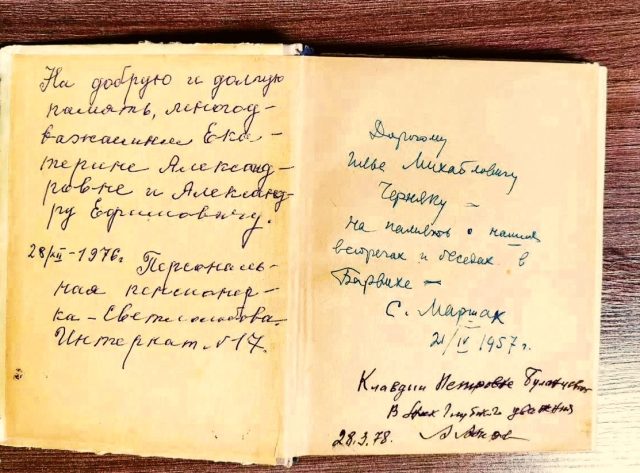 На добрую и долгую
память, многоу-
важаемым Ека-
терине Александ-
ровне и Александ-
ру Ефимовичу.
28/XII-1976г Персональ-
ная пенсионер-
ка - Светломобова.
Интеркат. №17.
Дорогому
Илье Михайловичу
Черняку -
на память о наших
встречах и беседах в
Барвихе -
С. Маршак
21/IV 1957 г.
Клавдии Петровне
В знак глубокого уважения
28.3.78.